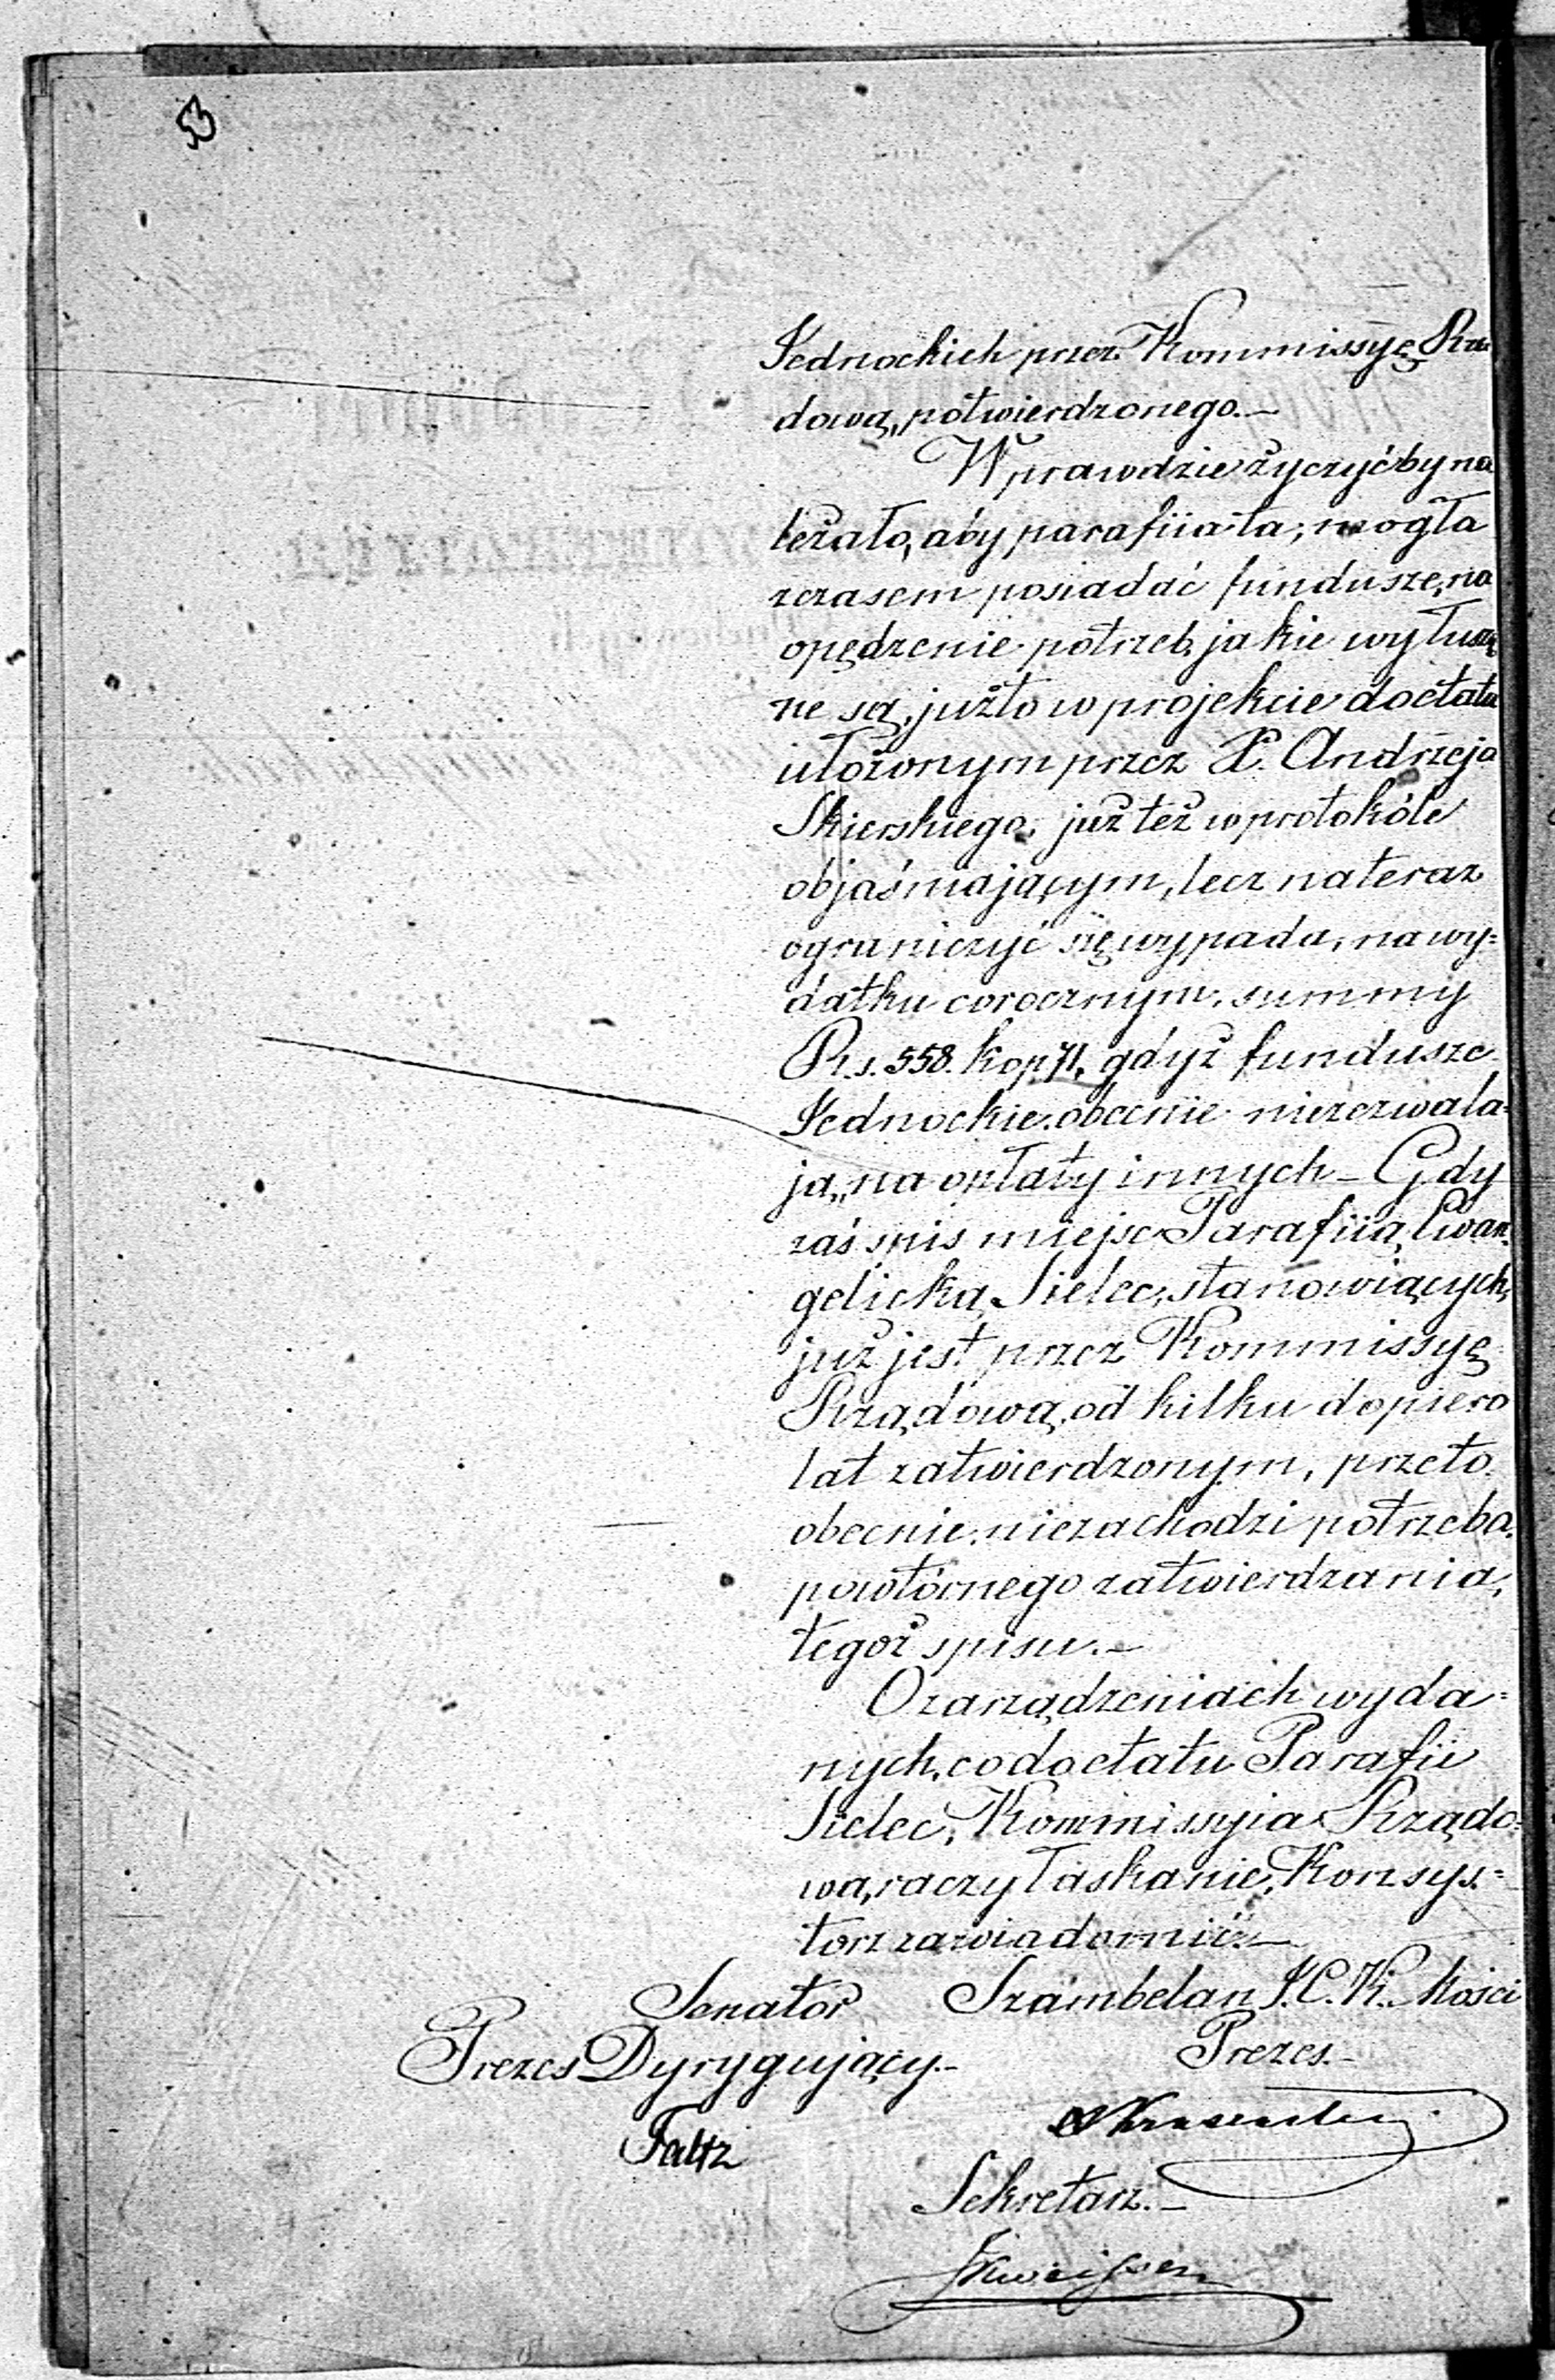 53
Jednockich przez Kommissyę Rzą
dową, potwierdzonego.—
Wprawdzie życzyćby na
leżało, aby parafiia ta, mogła
zczasem posiadać fundusze, na
opędzenie potrzeb, jakie wyłuszczo
ne są, jużto w projekcie doetatu
ułożonym przez X. Andrzeja
Skierskiego, już też w protokóle
objaśniającym, lecz nateraz
ograniczyć się wypada, na wy=
datku corocznym, summy
R.s. 558. kop 71, gdyż fundusze
Jednockie obecnie niezezwala=
ją, na opłaty innych — Gdy
zaś spis miejsc Parafiią Ewan=
gelicką Sielec, stanowiących,
już jest przez Kommissyę
Rządową, od kilku dopiero
lat zatwierdzonym, przeto
obecnie niezachodzi potrzeba
powtórnego zatwierdzania,
tegoż spisu.—
O zarządzeniach wyda=
nych, co do etatu Parafii
Sielec, Kommissyia Rządo=
wa, raczy łaskawie, Konsys=
torz zawiadomić.—
Senator Szambelan J.C.K. Mości
Prezes Dyrygujący.— Prezes.—
Faltz
Sekretarz.—